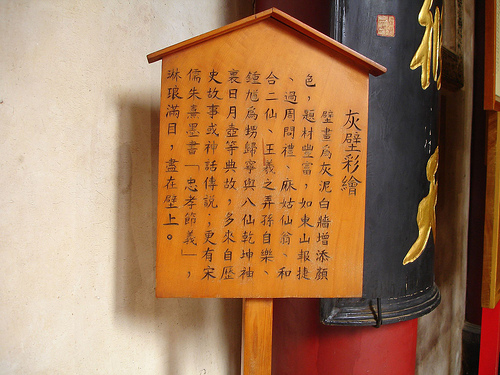 灰壁彩繪
壁畫為灰泥白牆增添顏
色，題材豐富，如東山報捷
、過周問禮、麻姑仙翁、和
合二仙、王羲之弄孫自樂、
鍾馗為甥歸寧與八仙乾坤神
裏日月壺等典故，多來自歷
史故事或神話傳說；更有宋
儒朱熹墨書「忠孝節義」，
琳琅滿目，盡在壁上。